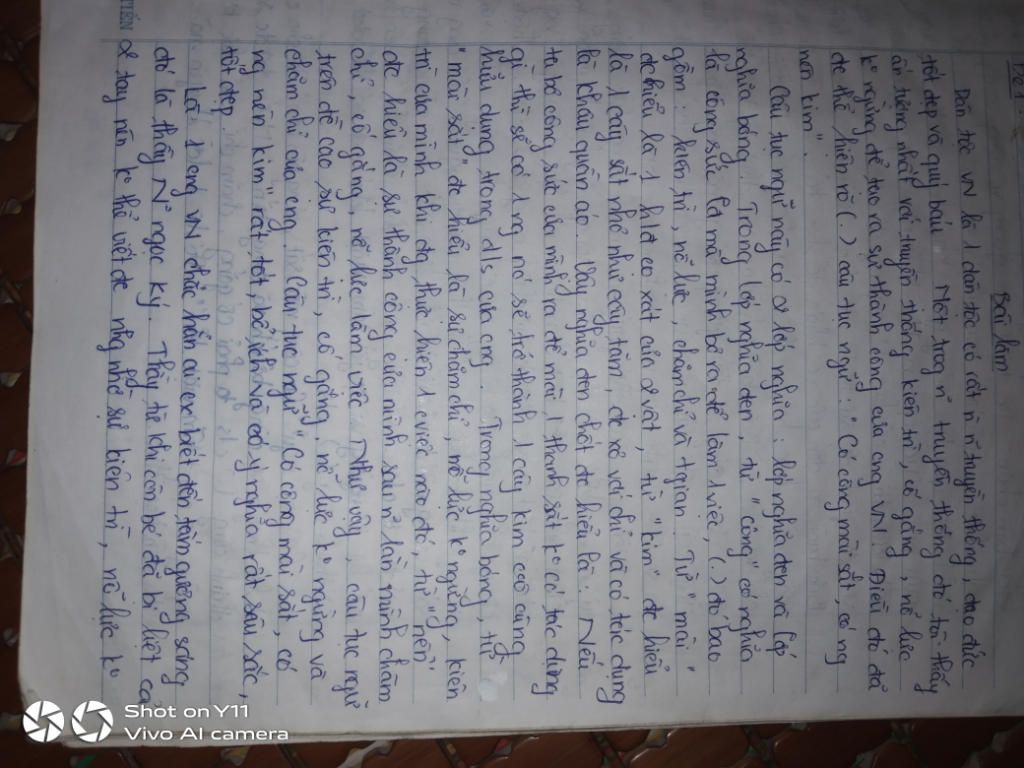 Đề 1:
Bài làm
Dân tộc VN là 1 dân tộc có rất n n truyền thống, đạo đức
tốt đẹp và quý báu. Một trog n truyền thống đó tôi thấy
ấn tượng nhất với truyền thống kiên trì, cố gắng, nỗ lực
k° ngừng để tạo ra sự thành công của cng VN. Điều đó đã
đc thể hiện rõ (.) câu tục ngữ: "Có công mài sắt, có ng
nên kim".
Câu tục ngữ này có 2 lớp nghĩa: lớp nghĩa đen và lớp
nghĩa bóng. Trong lớp nghĩa đen, từ "công" có nghĩa
là công sức mà mình bỏ ra để làm 1 việc, (.) đó bao
gồm: kiên trì, nỗ lực, chăm chỉ và tgian. Từ "mài"
dễ hiểu là 1 hđ cọ xát của 2 vật, từ "kim" dc hiểu
là 1 cây sắt nhỏ như cây tăm, dc xỏ với chỉ và có tác dụng
là khâu quần áo. Vậy nghĩa đen chốt dc hiểu là: Nếu
ta bỏ công sức của mình ra để mài 1 thanh sắt k° có tác dụng
gì thì sẽ có 1 ng nó sẽ trở thành 1 cây kim vô cùng
hữu dụng trong đ/s của cng. Trong nghĩa bóng, từ
"mài sắt" dc hiểu là sự chăm chỉ, nỗ lực k° ngừng, kiên
trì của mình khi đg thực hiện 1 việc nào đó, từ "nên kim"
dc hiểu là sự thành công của mình sau n lần mình chăm
chỉ, cố gắng, nỗ lực làm việc. Như vậy, câu tục ngữ
trên đề cao sự kiên trì, cố gắng, nỗ lực k° ngừng và
chăm chỉ của cng. Câu tục ngữ "Có công mài sắt, có
ng nên kim" rất tốt, bổ ích và có ý nghĩa rất sâu sắc,
tốt đẹp.
Là 1 ng VN chắc hẳn ai cx biết đến tấm gương sáng
đó là thầy N° Ngọc Ký. Thầy từ khi còn bé đã bị liệt cả
2 tay nên k° thể viết dc nhưng nhờ sự kiên trì, nỗ lực k°
TIẾN
Shot on Y11
Vivo AI camera